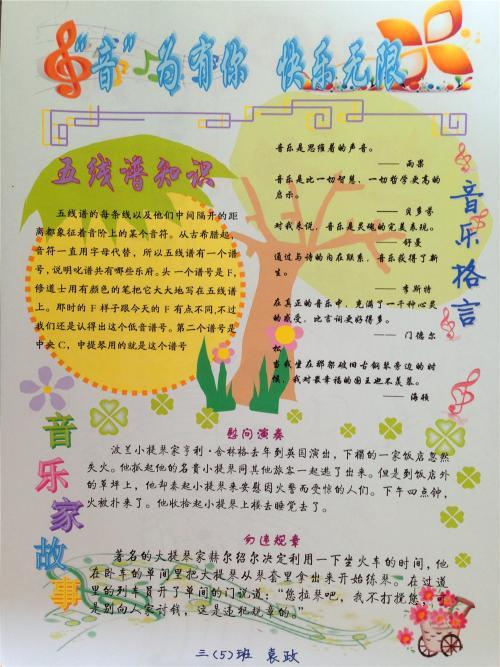 “音”为有你 快乐无限
五线谱知识
五线谱的每条线以及他们中间隔开的距
离都象征着音阶上的某个音符。从古希腊起，
音符一直用字母代替，所以五线谱有一个谱
号，说明此谱共有哪些乐府。头一个谱号是F，
修道士用有颜色的笔把它大大地写在五线谱
上。那时的F样子跟今天的F有点不同，不过
我们还是认得出这个低音谱号。第二个谱号是
中央C，中提琴用的就是这个谱号
音乐格言
音乐是思维着的声音。
—— 雨果
音乐是比一切智慧、一切哲学更高的
启示。
—— 贝多芬
对我来说，音乐是灵魂的完美表现。
—— 舒曼
通过与诗的内在联系，音乐获得了新
生。
—— 李斯特
在真正的音乐中，充满了一千种心灵
的感受，比言词更好得多。
—— 门德尔
松
当我坐在那架破旧古钢琴旁边的时
候，我对最幸福的国王也不羡慕。
—— 海顿
音乐家故事
慰问演奏
波兰小提琴家亨利·舍林格去年到英国演出，下榻的一家饭店忽然
失火。他抓起他的名贵小提琴同其他旅客一起逃了出来。但是到饭店外
的草坪上，他却奏起小提琴来安慰因火警而受惊的人们。下午四点钟，
火被扑来了。他收拾起小提琴上楼去睡觉去了。
勿违规章
著名的大提琴家赫尔绍尔决定利用一下坐火车的时间，他
在卧车的单间里把大提琴从琴套里拿出来开始练琴。在过道
里的列车员开了单间的门说道：“您拉琴吧，我不打搅您，可
是别向人家讨钱，这是违犯规章的。”
三（5）班 袁政